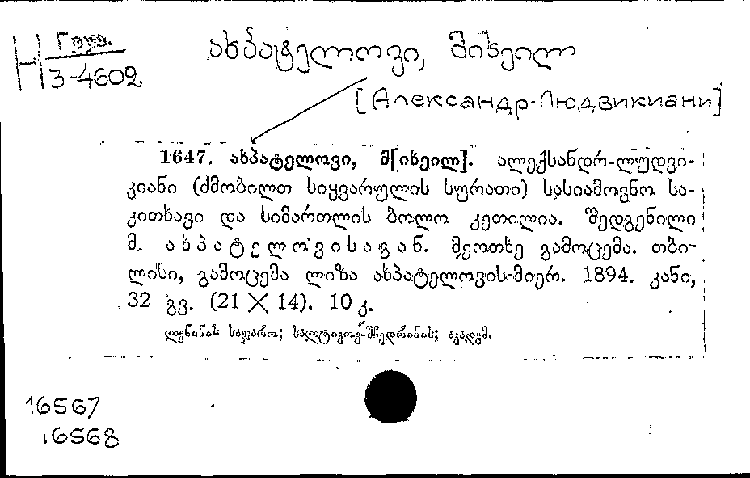 Н Груз.
3-4602
ახპატელოვი, მიხეილ
[Александр-Людвикиани]
1647. ახპატელოვი, მ[იხეილ]. ალექსანდრ-ლუდვი-
კიანი (ძმობილთ სიყვარულის სურათი) სასიამოვნო სა-
კითხავი და სიმართლის ბოლო კეთილია. შედგენილი
მ. ახპატელოვისაგან. მეოთხე გამოცემა. თბი-
ლისი, გამოცემა ლიზა ახპატელოვის-მიერ. 1894. კანი,
32 გვ. (21 × 14). 10 კ.
ლენინის საჯარო; სალტიკოვ-შჩედრინის; აკადემ.
16567
16568